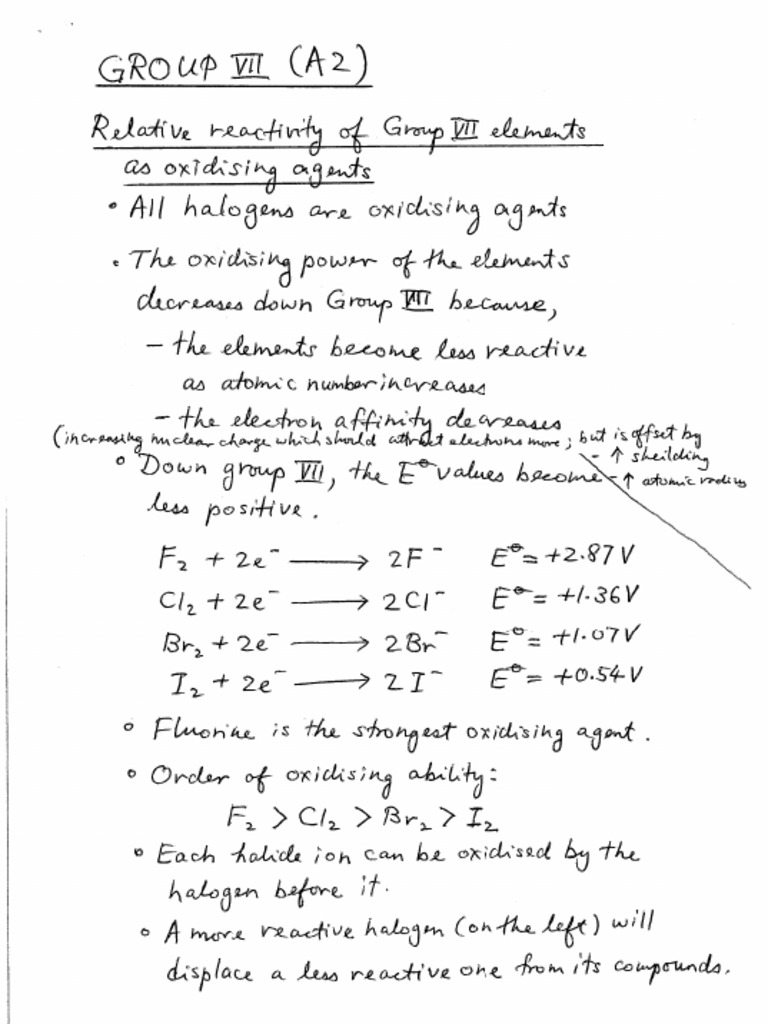 GROUP VII (A2)
Relative reactivity of Group VII elements
as oxidising agents
• All halogens are oxidising agents
• The oxidising power of the elements
decreases down Group VII because,
– the elements become less reactive
as atomic number increases
– the electron affinity decreases
(increasing nuclear charge which should attract electrons more; but is offset by
- ↑ sheilding
- ↑ atomic radius
• Down group VII, the E⦵ values become
less positive.
F₂ + 2e⁻ ⟶ 2F⁻ E⦵ = +2.87V
Cl₂ + 2e⁻ ⟶ 2Cl⁻ E⦵ = +1.36V
Br₂ + 2e⁻ ⟶ 2Br⁻ E⦵ = +1.07V
I₂ + 2e⁻ ⟶ 2I⁻ E⦵ = +0.54V
• Fluorine is the strongest oxidising agent.
• Order of oxidising ability:
F₂ > Cl₂ > Br₂ > I₂
• Each halide ion can be oxidised by the
halogen before it.
• A more reactive halogen (on the left) will
displace a less reactive one from its compounds.